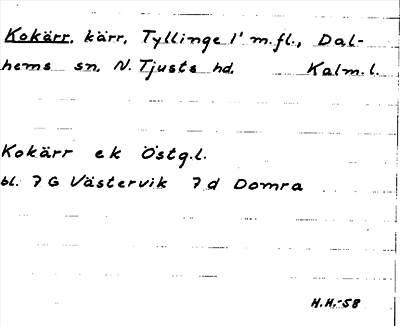 Kokärr, kärr, Tyllinge 1' m.fl., Dal-
hems sn, N. Tjusts hd. Kalm.l.
Kokärr ek Östg.l.
bl. 7 G Västervik 7 d Domra
H.H.-58